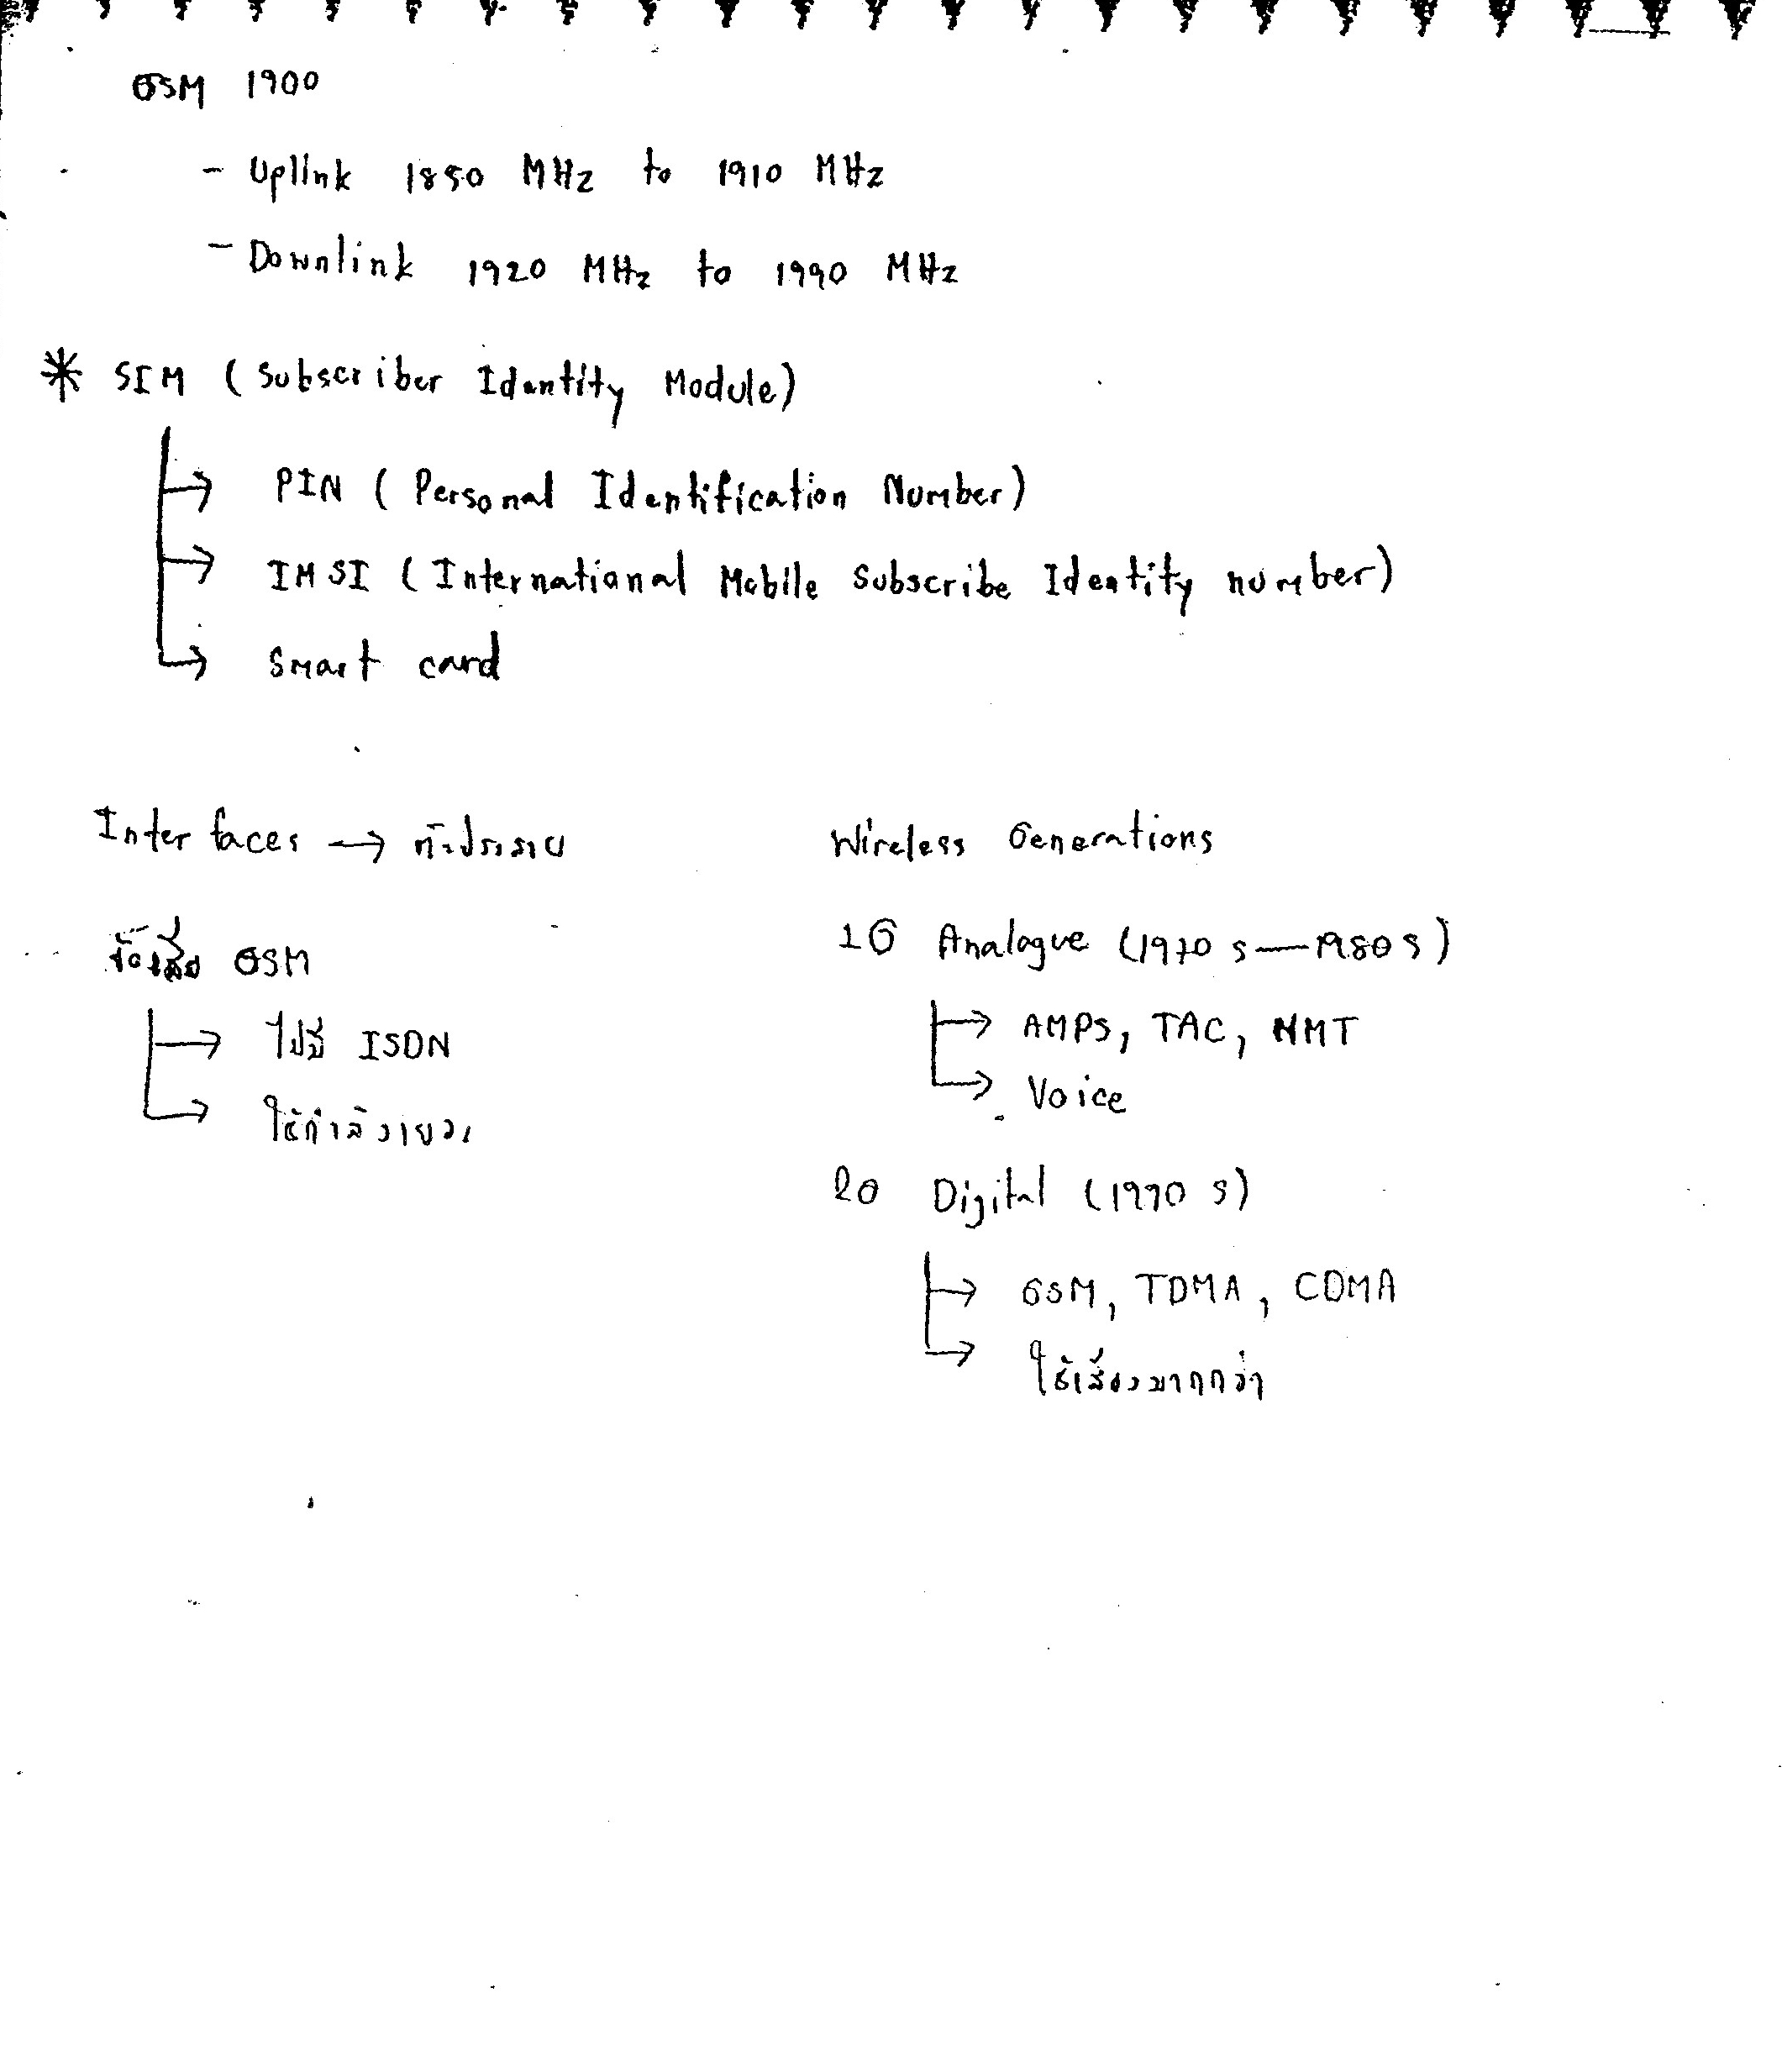 GSM 1900
- Uplink 1850 MHz to 1910 MHz
- Downlink 1920 MHz to 1990 MHz
* SIM (Subscriber Identity Module)
→ PIN (Personal Identification Number)
→ IMSI (International Mobile Subscribe Identity number)
→ Smart card
Interfaces →
ข้อเสีย GSM
→ ไม่มี ISDN
→ ใช้กำลังเยอะ
Wireless Generations
1G Analogue (1970 s — 1980 s)
→ AMPS, TAC, NMT
→ Voice
2G Digital (1990 s)
→ GSM, TDMA, CDMA
→ ใช้เสียงมากกว่า